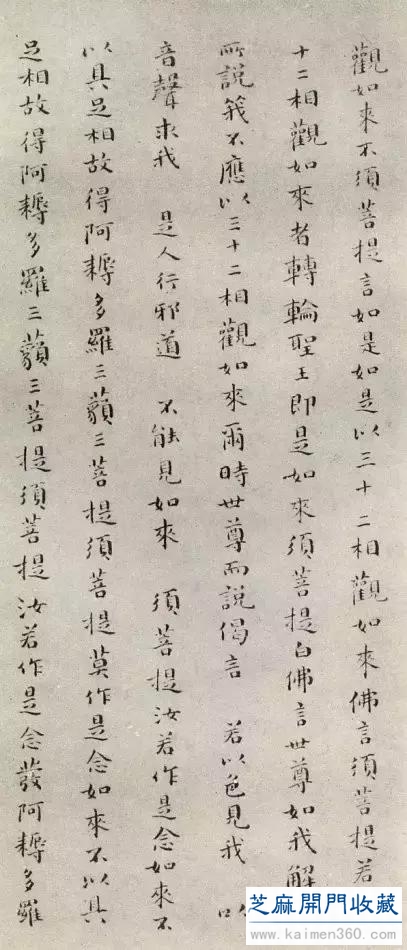 觀如來不須菩提言如是如是以三十二相觀如來佛言須菩提若
十二相觀如來者轉輪聖王即是如來須菩提白佛言世尊如我解
所說義不應以三十二相觀如來爾時世尊而說偈言 若以色見我 以
音聲求我 是人行邪道 不能見如來 須菩提汝若作是念如來不
以具足相故得阿耨多羅三藐三菩提須菩提莫作是念如來不以具
足相故得阿耨多羅三藐三菩提須菩提汝若作是念發阿耨多羅
芝麻開門收藏
www.kaimen360.com